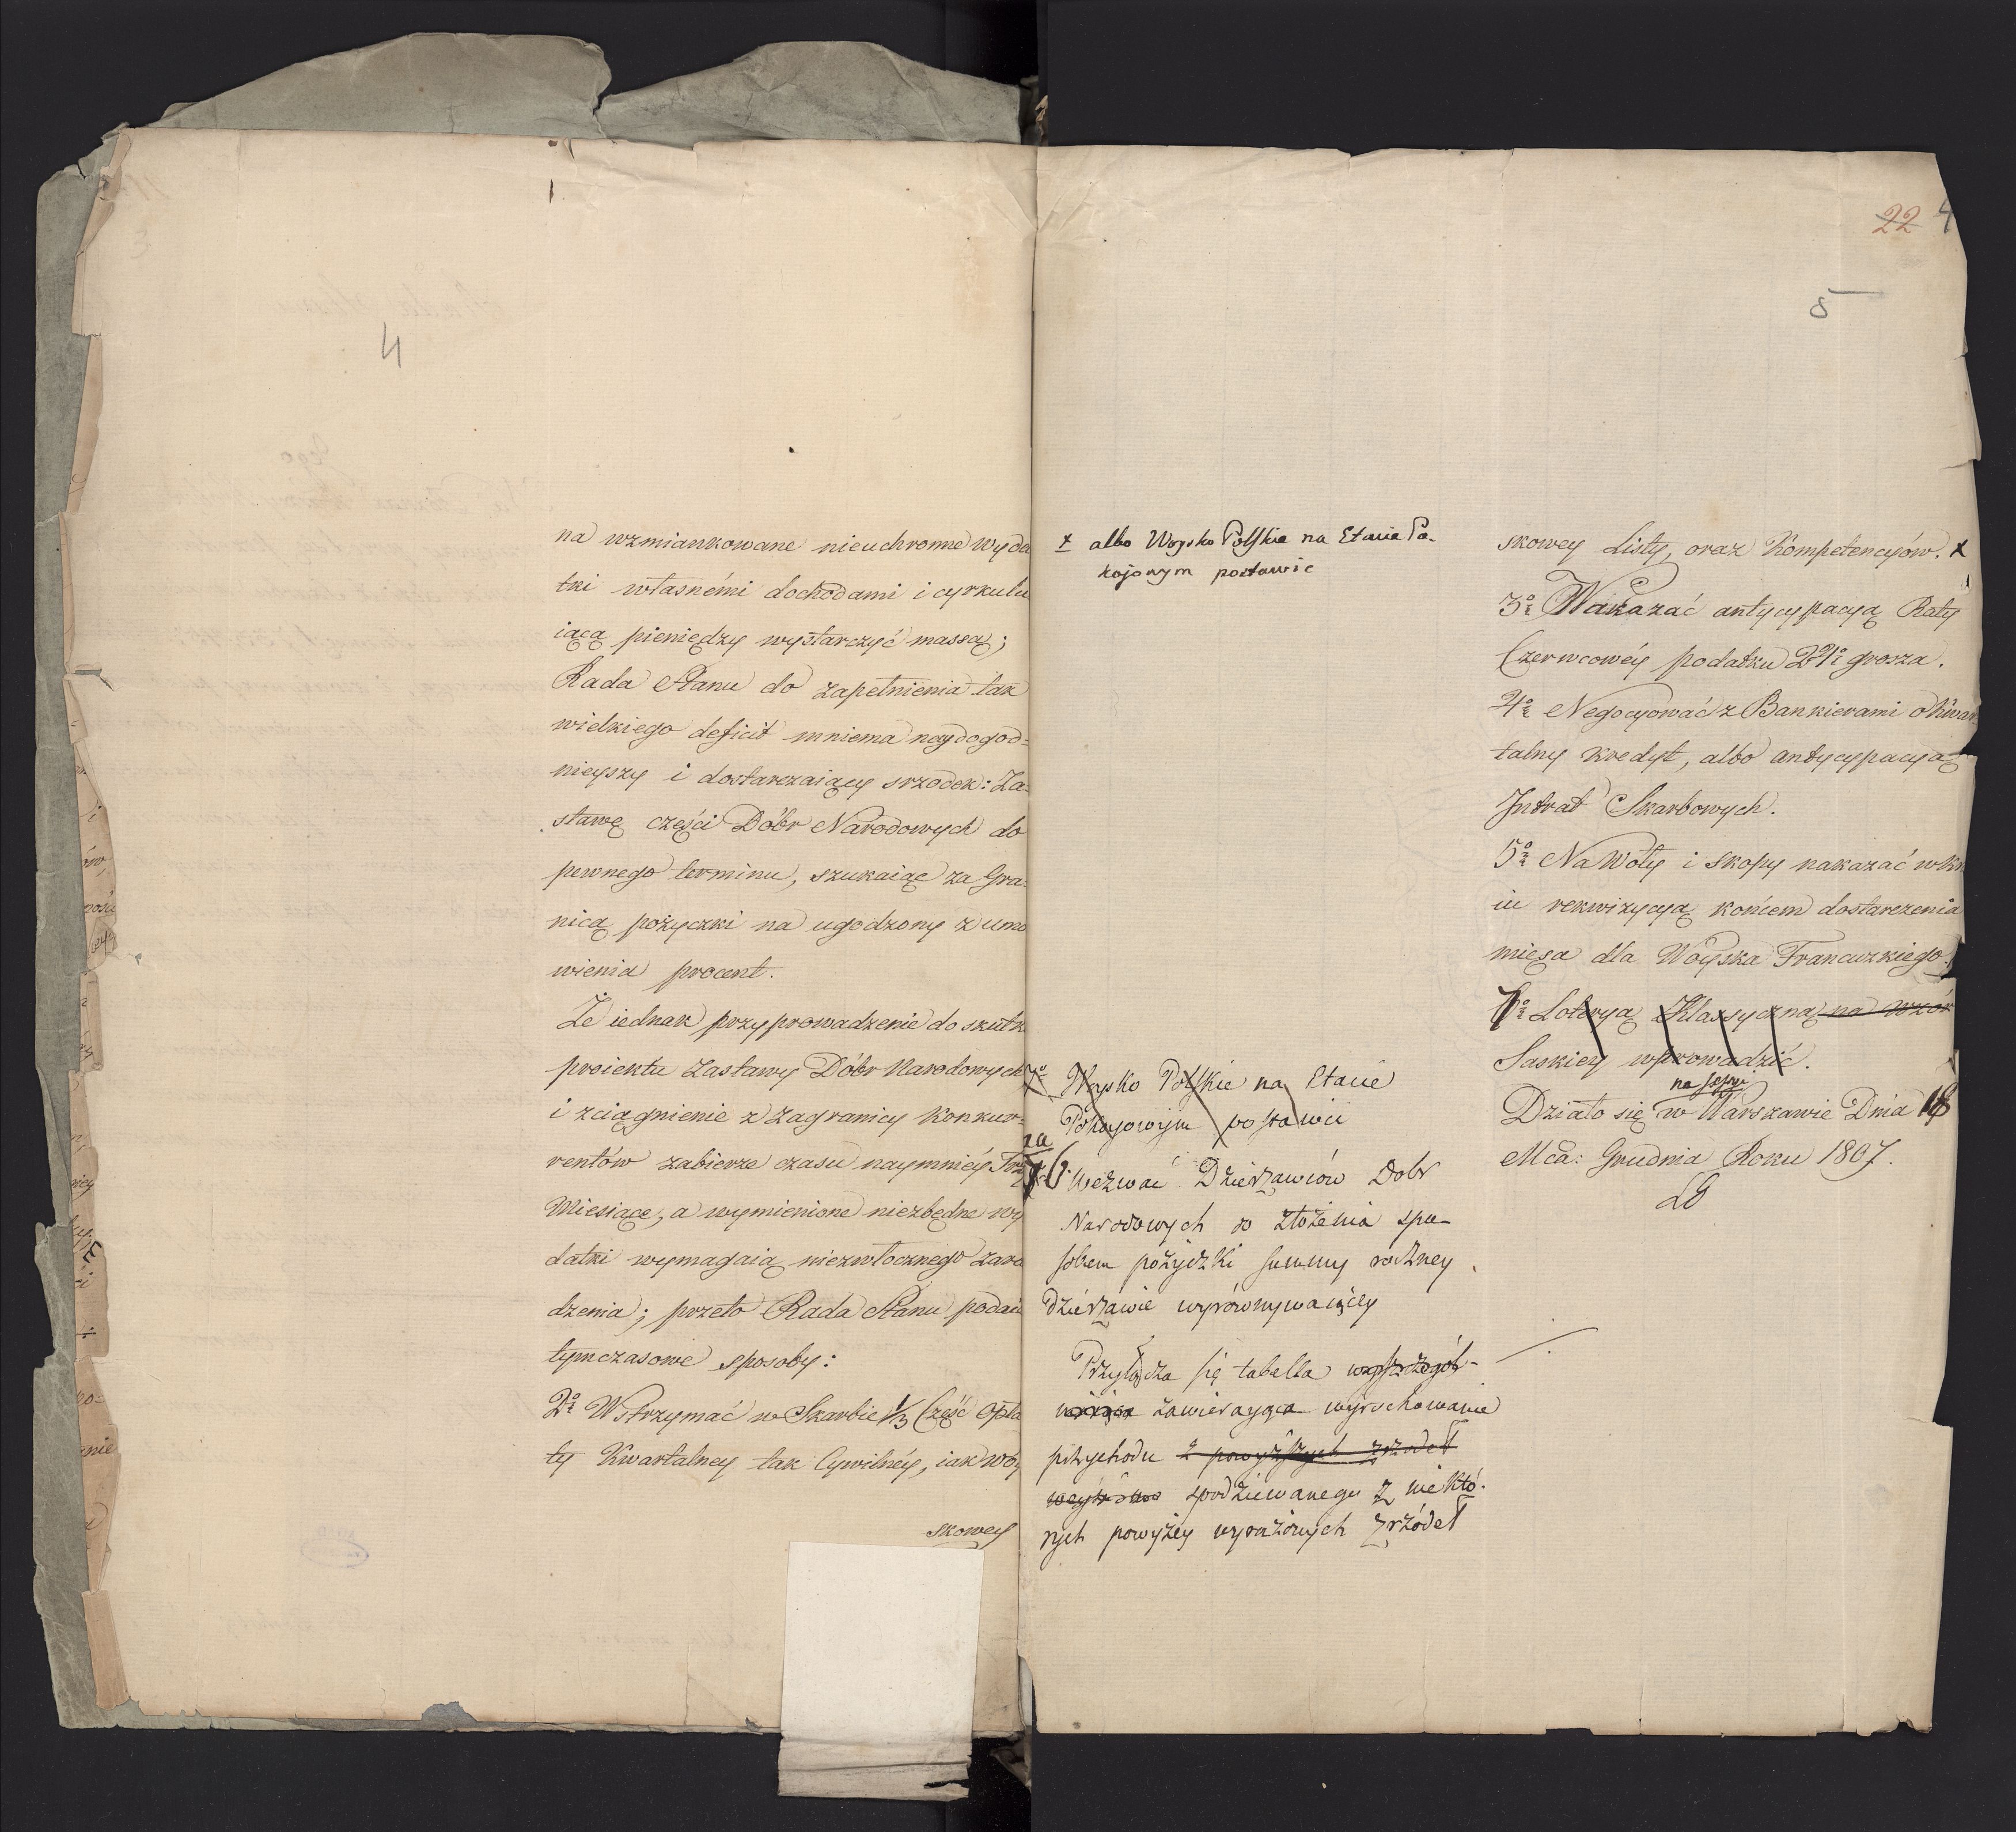 4
na wzmiankowane nieuchronne wyda
tki własnémi dochodami i cyrkulu
iącą pieniędzy wystarczyć massą;
Rada Stanu do zapełnienia tak
wielkiego deficit mniema naydogod=
nieyszy i dostarczaiący srzodek: Za=
stawę części Dóbr Narodowych do
pewnego terminu, szukaiąc za Gra=
nicą pożyczki na ugodzony z umó
wienia procent.
Że iednak przyprowadzenie do skutk
proiektu zastawy Dóbr Narodowych
i zciągnienie z zagranicy Konkur=
rentów zabierze czasu naymniéy Trzy
Miesiące, a wymienione niezbędne wy
datki wymagaią niezwłocznego zara
dzenia; przeto Rada Stanu podaie
tymczasowe sposoby:
2º Wstrzymać w Skarbie 1/3 Część Opła
ty Kwartalney tak Cywilnéy, iak Woy
skowey
22 4
5
+ albo Woysko Polskie na Etacie Po-
kojowym postawić
7º Woysko Polskie na Etacie
Pokoyowym postawić
6. Wezwać Dzierzawców Dobr
Narodowych do złożenia spo-
sobem pożyczki summy roczney
dzierzawie wyrównywaiącey
Przyłącza się tabella wyszczegól-
niaiąca zawieraiąca wyrachowanie
przychodu z powyższych zrzodeł
spodziewanego z niektó-
rych powyżey wyrażonych zrzódeł
skowey Listy, oraz Kompetencyów. +
3º Nakazać antycypacyą Raty
Czerwcowéy podatku 24º grosza.
4º Negocyować z Bankierami o Kwar
talny kredyt, albo antycypacyą
Intrat Skarbowych.
5º Na Woły i skopy nakazać w Kra
iu rekwizycyą końcem dostarczenia
mięsa dla Woyska Francuzkiego.
Loteryą Klassyczną na wzór
Saskiey wprowadzić.
na sessyi
Działo się w Warszawie Dnia 18
Mca: Grudnia Roku 1807.